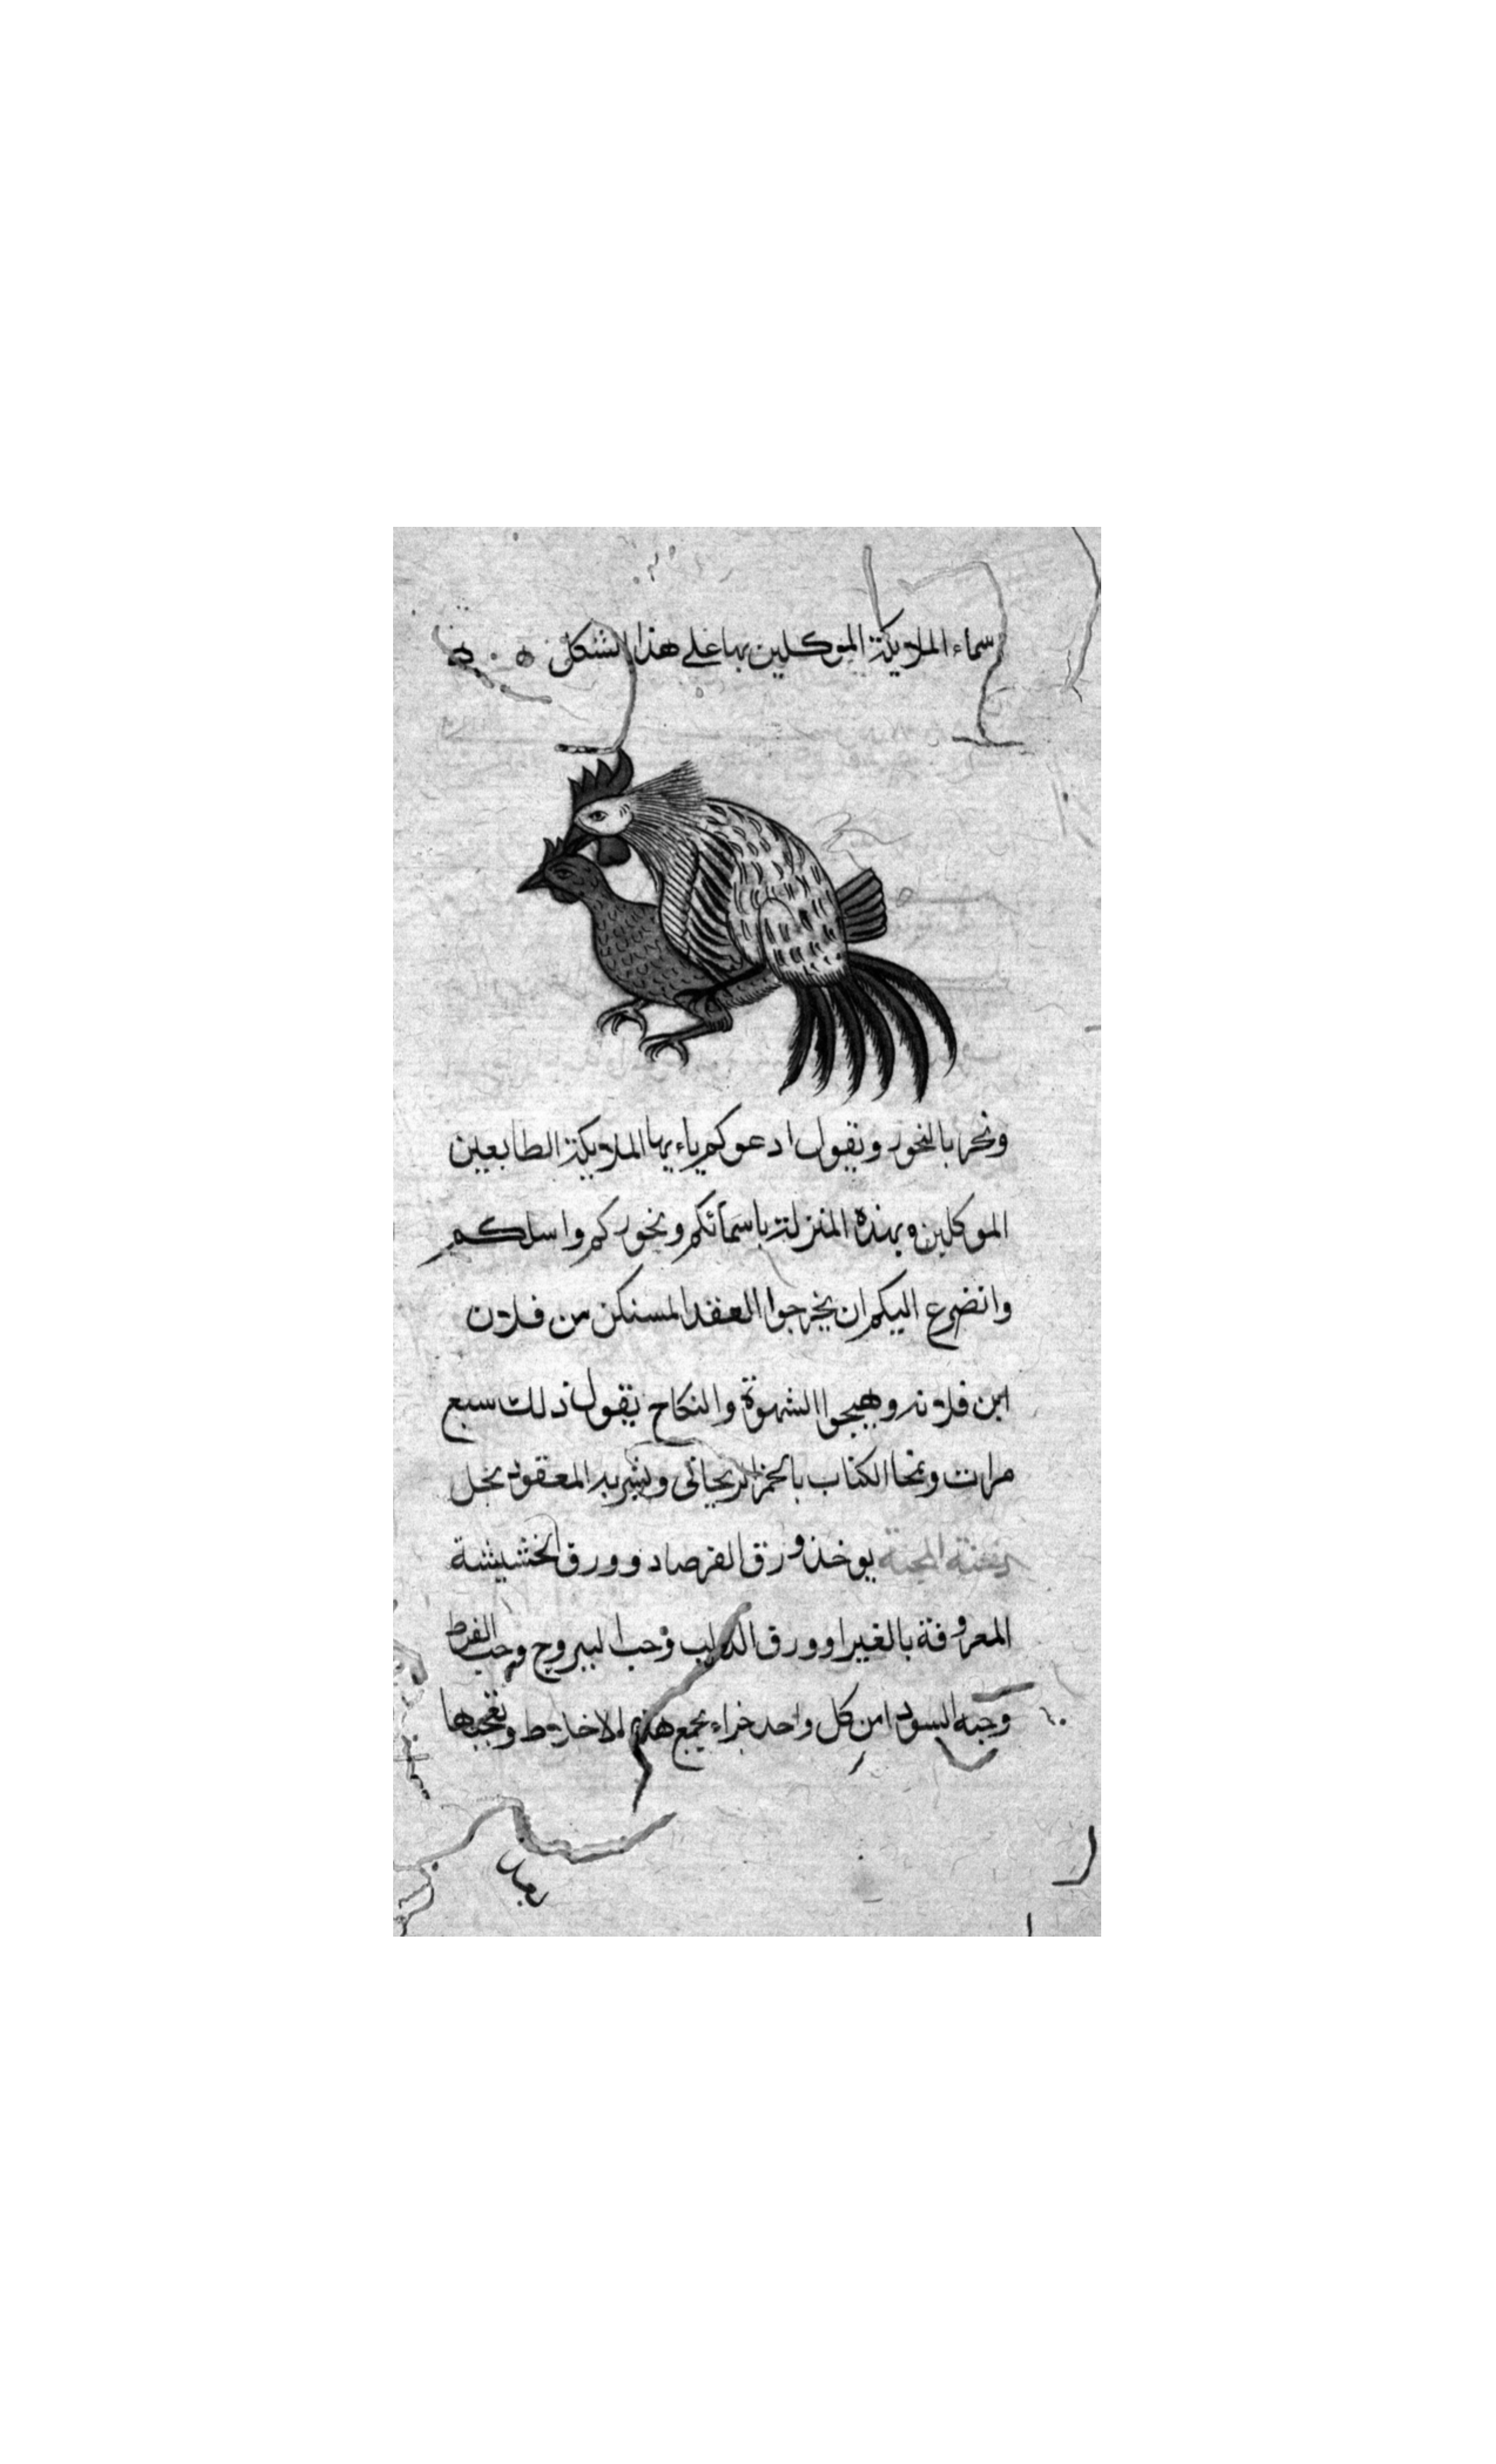 سماء الملايكة الموكلين بها على هذا الشكل
ونحر بالبخور ويقول ادعوكم ياءيها الملايكة الطايعين
الموكلين بهذه المنزلة باسمآئكم وبخوركم واسلكم
واتضرع اليكم ان يخرجوا العقد المستكن من فلان
ابن فلانه ويهيجوا الشهوة والنكاح يقول ذلك سبع
مرات ونمحا الكتاب بالخمر الريحانى ويشربه المعقود يحل
المحبة يوخذ ورق الفرصاد وورق الحشيشة
المعروفة بالغبيرا وورق الدلب وحب اليبروح وحب القرط
وحبه السودا من كل واحد جزاء يجمع هذه الاخلاط وتعجنها